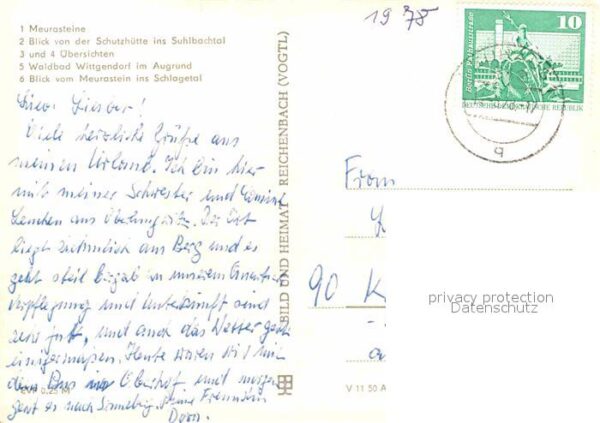 1 Meurasteine
2 Blick von der Schutzhütte ins Suhlbachtal
3 und 4 Übersichten
5 Waldbad Wittgendorf im Augrund
6 Blick vom Meurastein ins Schlagetal
1978
10
Berlin Rathausstraße
DEUTSCHE DEMOKRATISCHE REPUBLIK
9
Viele herzliche Grüße aus
meinem Urlaub. Ich bin hier
mit meiner Schwester und
aus Der Ort
liegt ziemlich am Berg und es
geht steil bergab in unserem
Verpflegung und Unterkunft sind
sehr gut, und auch das Wetter geht
einigermaßen. Heute waren wir mit
dem Bus in Oberhof und morgen
geht es nach Sonneberg. Deine Freundin
Dora.
BILD UND HEIMAT · REICHENBACH (VOGTL)
From
90 K
privacy protection
Datenschutz
EVP 0,25 M
V 11 50 A